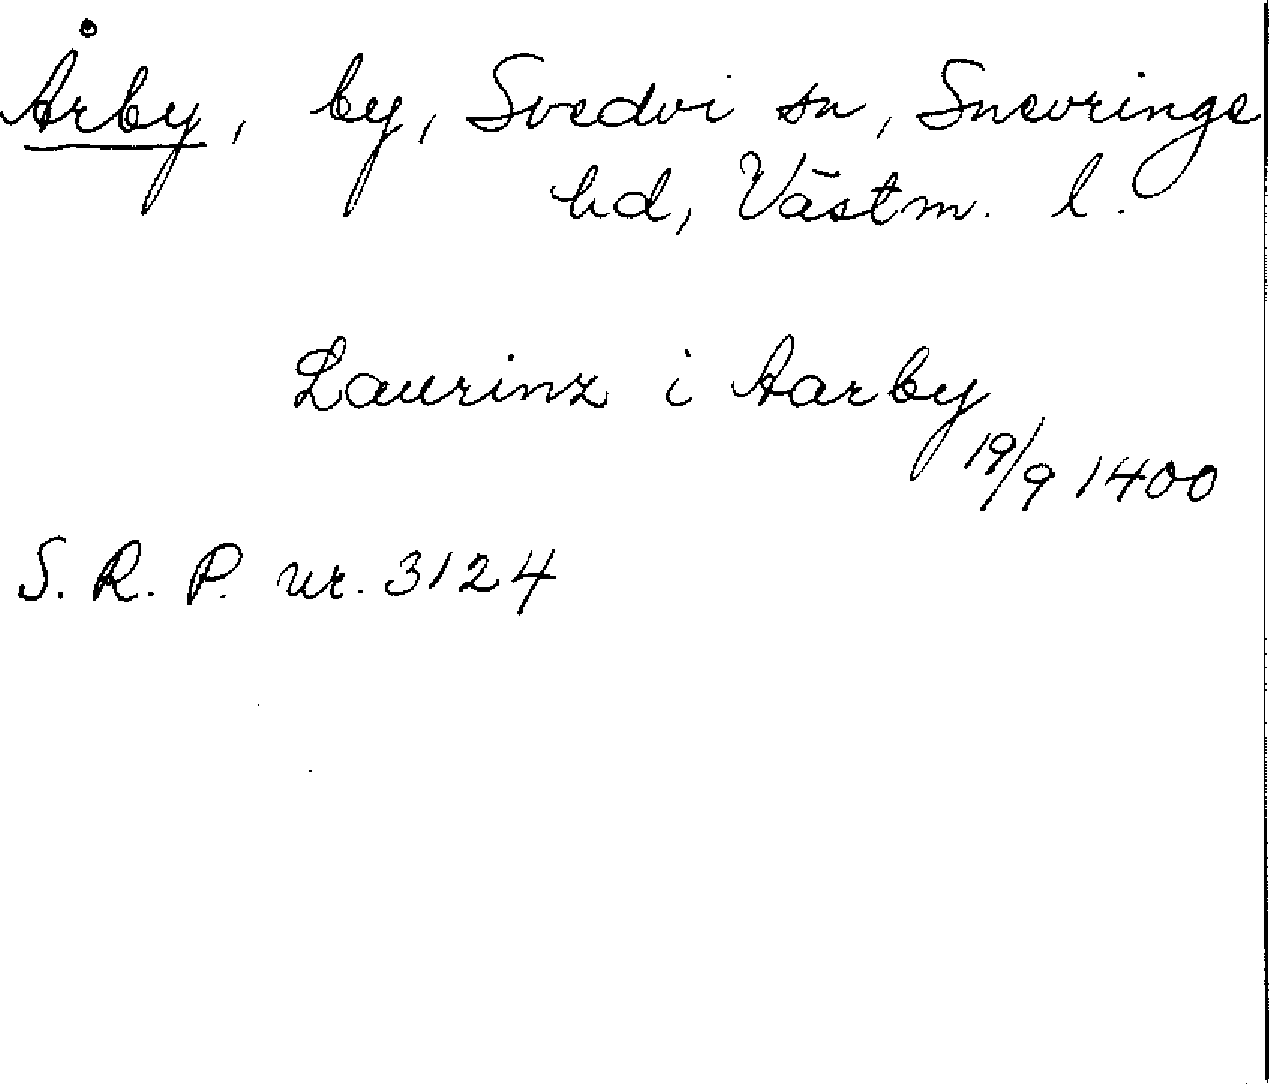 Årby, by, Svedvi sn, Snevringe
hd, Västm. l.
Laurinz i Aarby
19/9 1400
S. R. P. nr. 3124